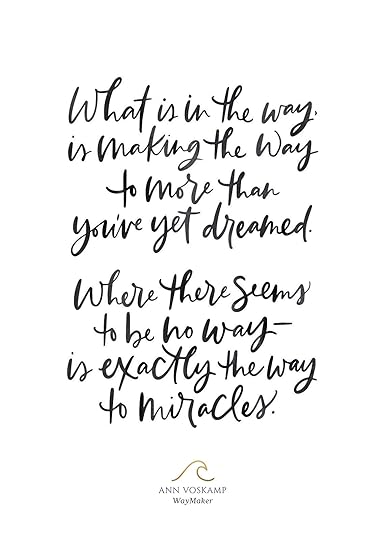 What is in the way,
is making the way
to more than
you've yet dreamed.
Where there seems
to be no way—
is exactly the way
to miracles.
ANN VOSKAMP
WayMaker